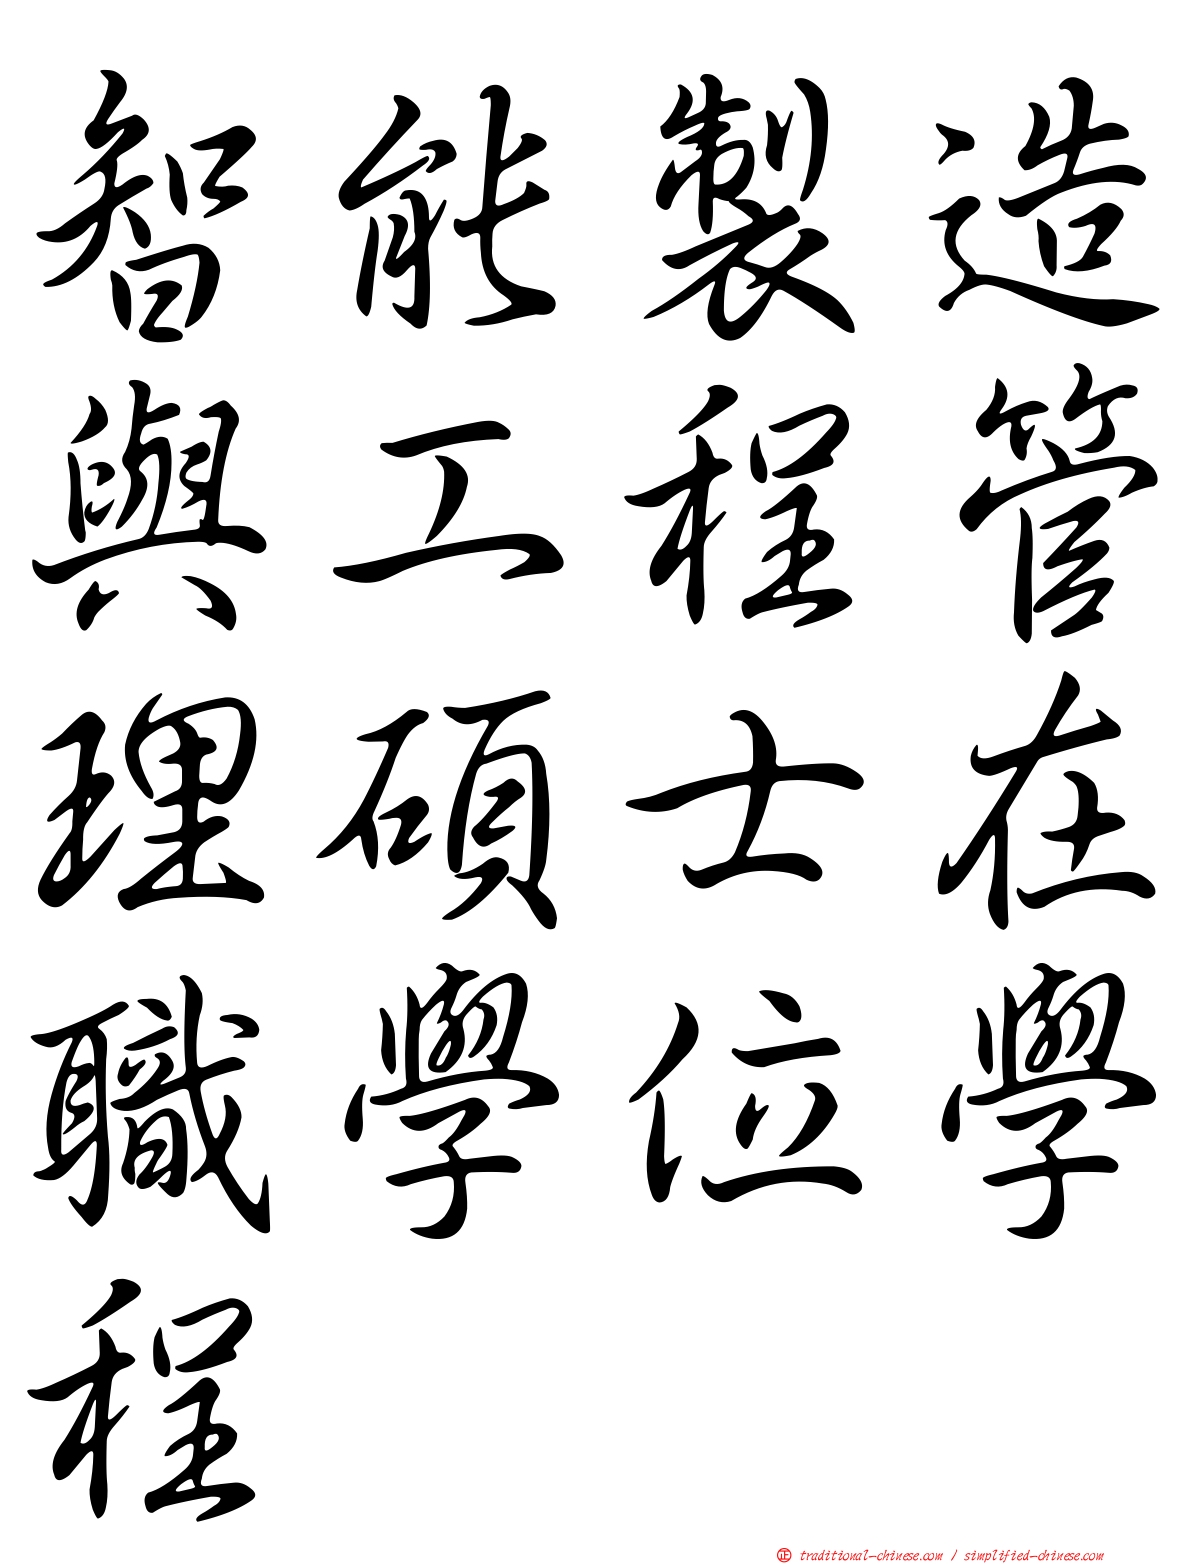 智能製造
與工程管
理碩士在
職學位學
程
㊣ traditional-chinese.com / simplified-chinese.com